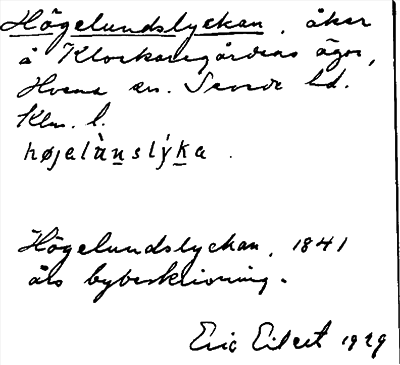 Högelundslyckan, åker
å Klockaregårdens ägor,
Hvena sn. Sevede hd.
Klm. l.
højəlànslýka.
Högelundslyckan, 1841
års bybeskrivning.
Eric Eilert 1929